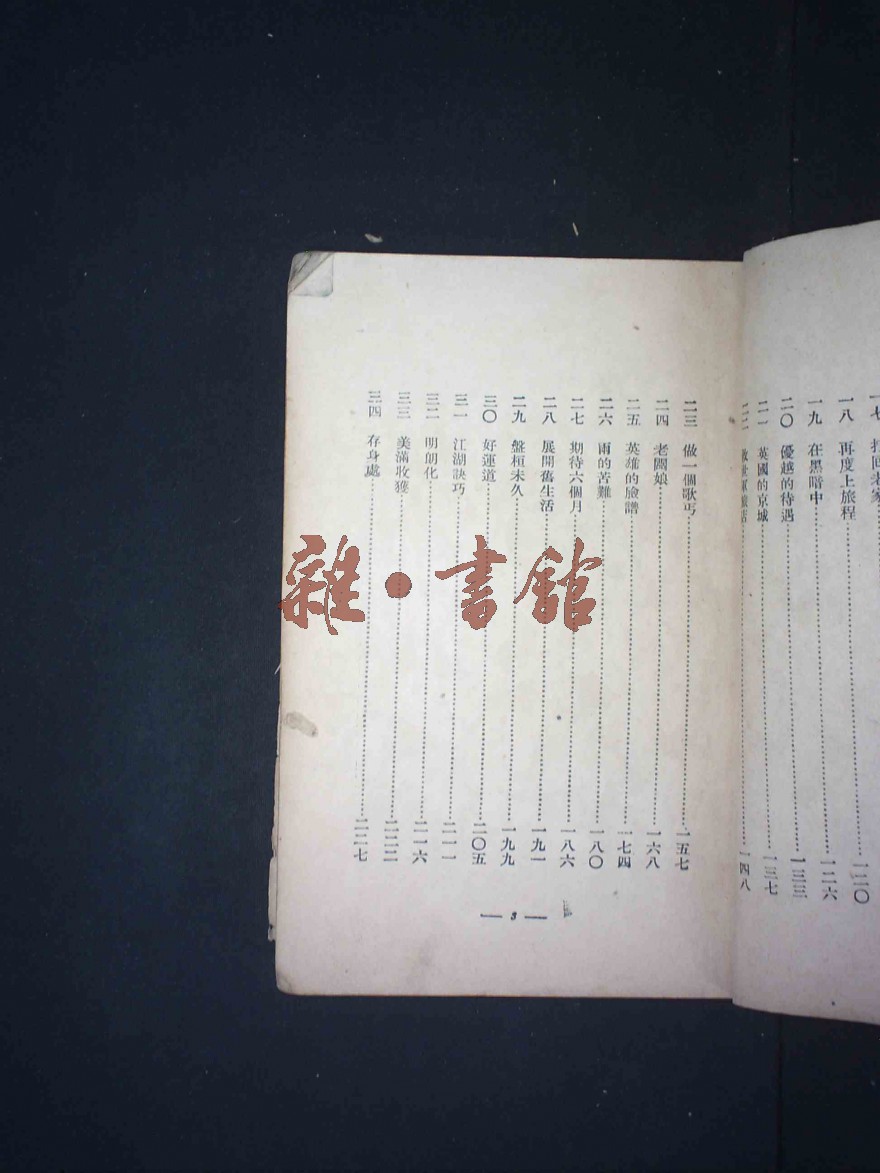 一七 打回老家
一八 再度上旅程 一二〇
一九 在黑暗中 一二六
二〇 優越的待遇 一三三
二一 英國的京城 一三七
二二 救世軍旅店 一四八
二三 做一個歌丐 一五七
二四 老闆娘 一六八
二五 英雄的臉譜 一七四
二六 雨的苦難 一八〇
二七 期待六個月 一八六
二八 展開舊生活 一九一
二九 盤桓未久 一九九
三〇 好運道 二〇五
三一 江湖訣巧 二一一
三二 明朗化 二一六
三三 美滿收獲 二二二
三四 存身處 二二七
— 3 —
雜·書館